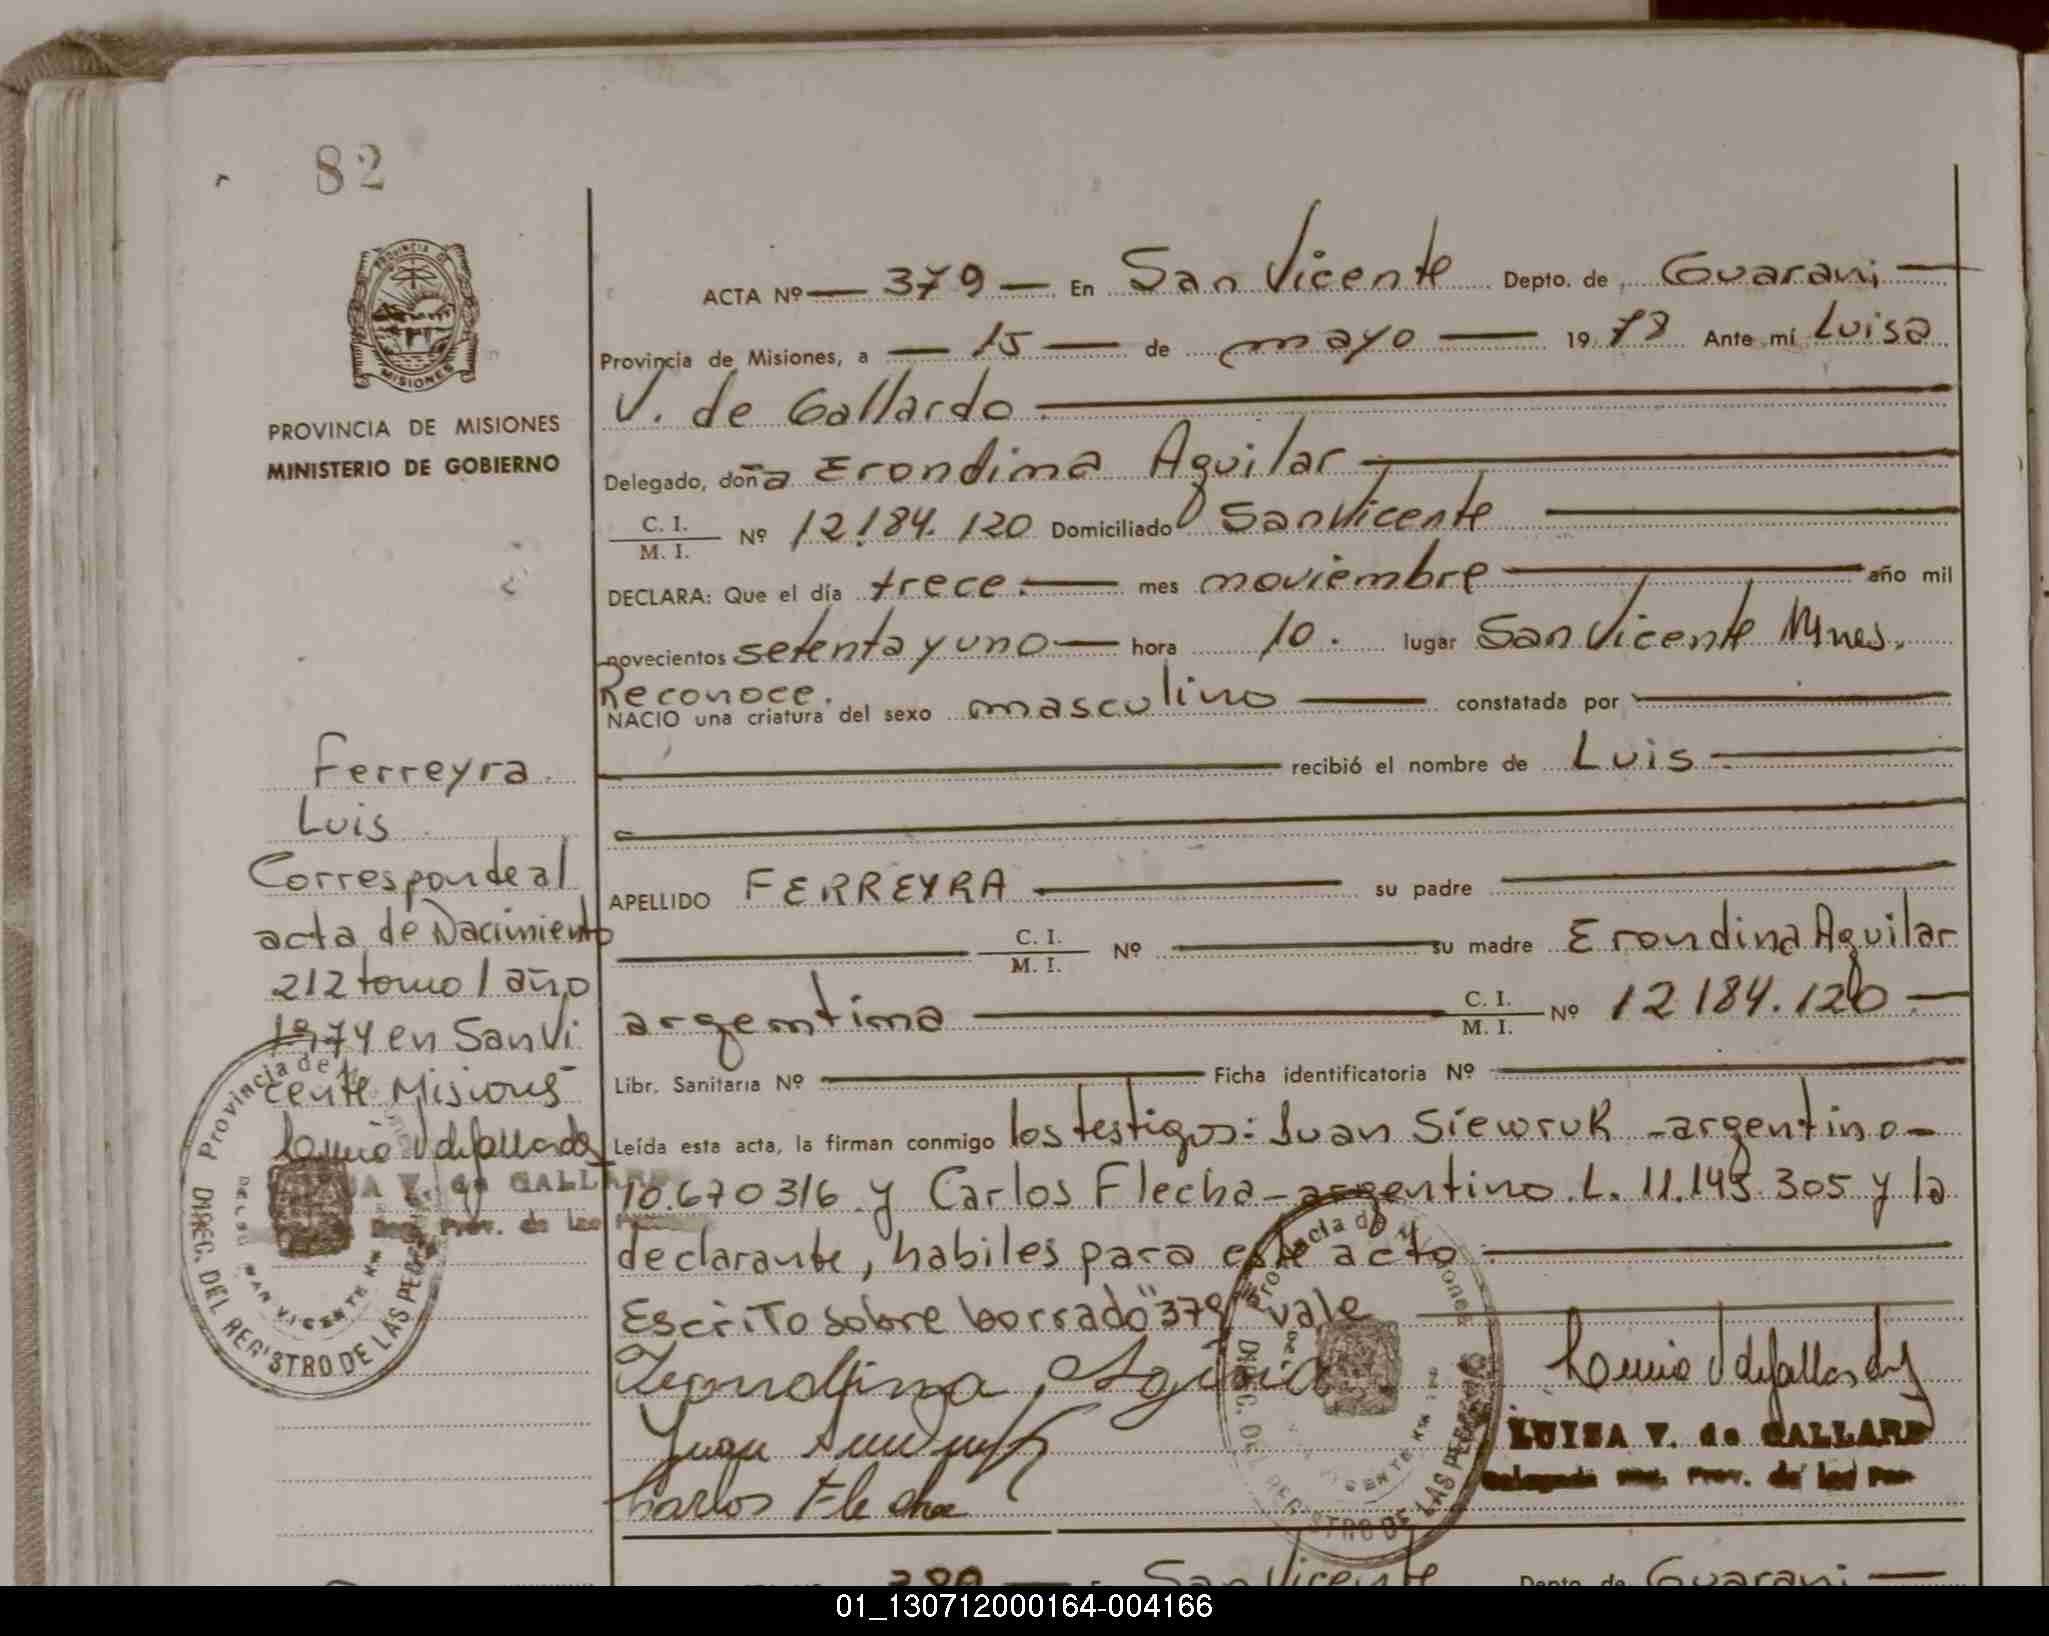 82
PROVINCIA DE MISIONES
MINISTERIO DE GOBIERNO
ACTA Nº — 379 — En San Vicente Depto. de Guarani —
Provincia de Misiones, a — 15 — de mayo — 1978 Ante mí Luisa
V. de Gallardo
Delegado, doña Erondima Aguilar
C. I. / M. I. Nº 12.184.120 Domiciliado San Vicente
DECLARA: Que el día trece. — mes noviembre — año mil
novecientos setenta y uno — hora 10. lugar San Vicente Mnes.
Reconoce.
NACIO una criatura del sexo masculino — constatada por
recibió el nombre de Luis
APELLIDO FERREYRA — su padre
C. I. / M. I. Nº — su madre Erondina Aguilar
argentina — C. I. / M. I. Nº 12 184.120 —
Libr. Sanitaria Nº — Ficha identificatoria Nº
Leída esta acta, la firman conmigo los testigos: Juan Siewruk - argentino -
10.670316 y Carlos Flecha - argentino. L. 11.145.305 y la
declarante, habiles para este acto
Escrito sobre borrado "379" vale
Carlos Flecha
LUISA V. de GALLARD
Ferreyra
Luis
Corresponde al
acta de Nacimiento
212 tomo 1 año
1974 en San Vi
cente Misiones
Provincia de
DIREC. DEL REGISTRO DE LAS PE
SAN VICENTE
Provincia de Misiones
DIREC. DEL REGISTRO DE LAS PE
380 — San Vicente Depto. de Guarani —
01_130712000164-004166